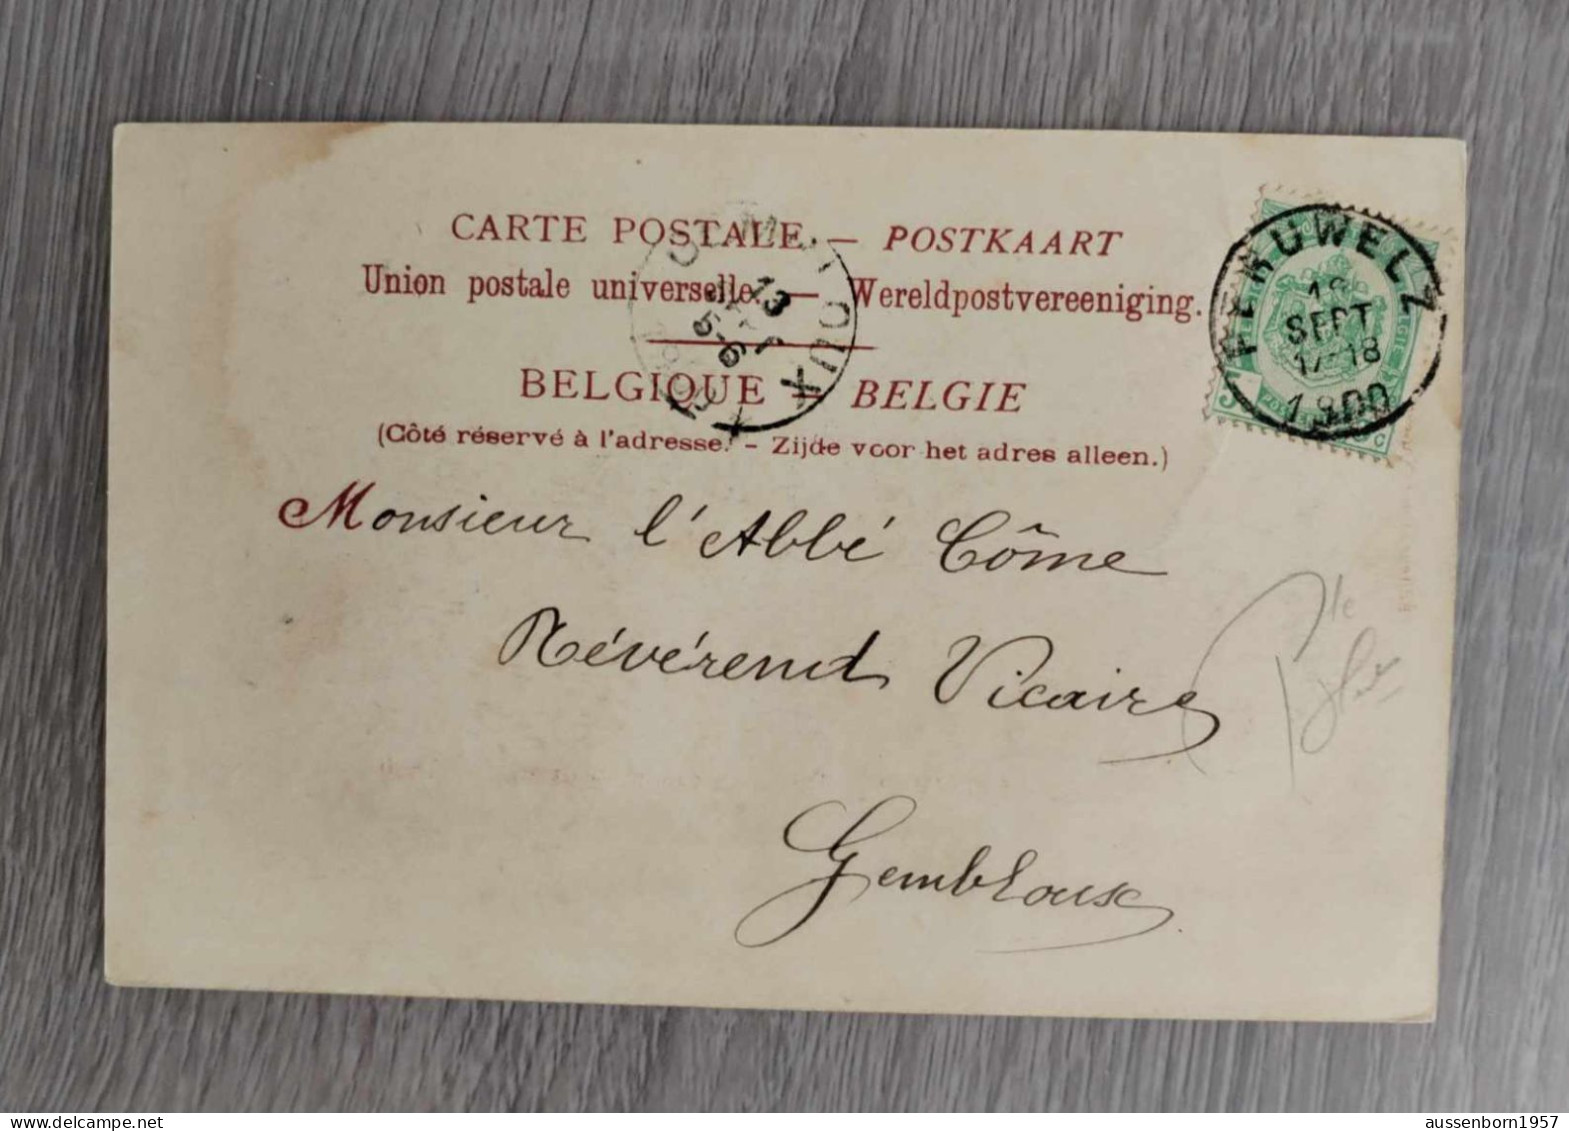 CARTE POSTALE. — POSTKAART
Union postale universelle. — Wereldpostvereeniging.
BELGIQUE — BELGIE
(Côté réservé à l'adresse. - Zijde voor het adres alleen.)
PERUWELZ
SEPT
17-18
1900
13
5-6
Monsieur l'Abbé Côme
Révérend Vicaire
Gembloux
delcampe.net
aussenborn1957